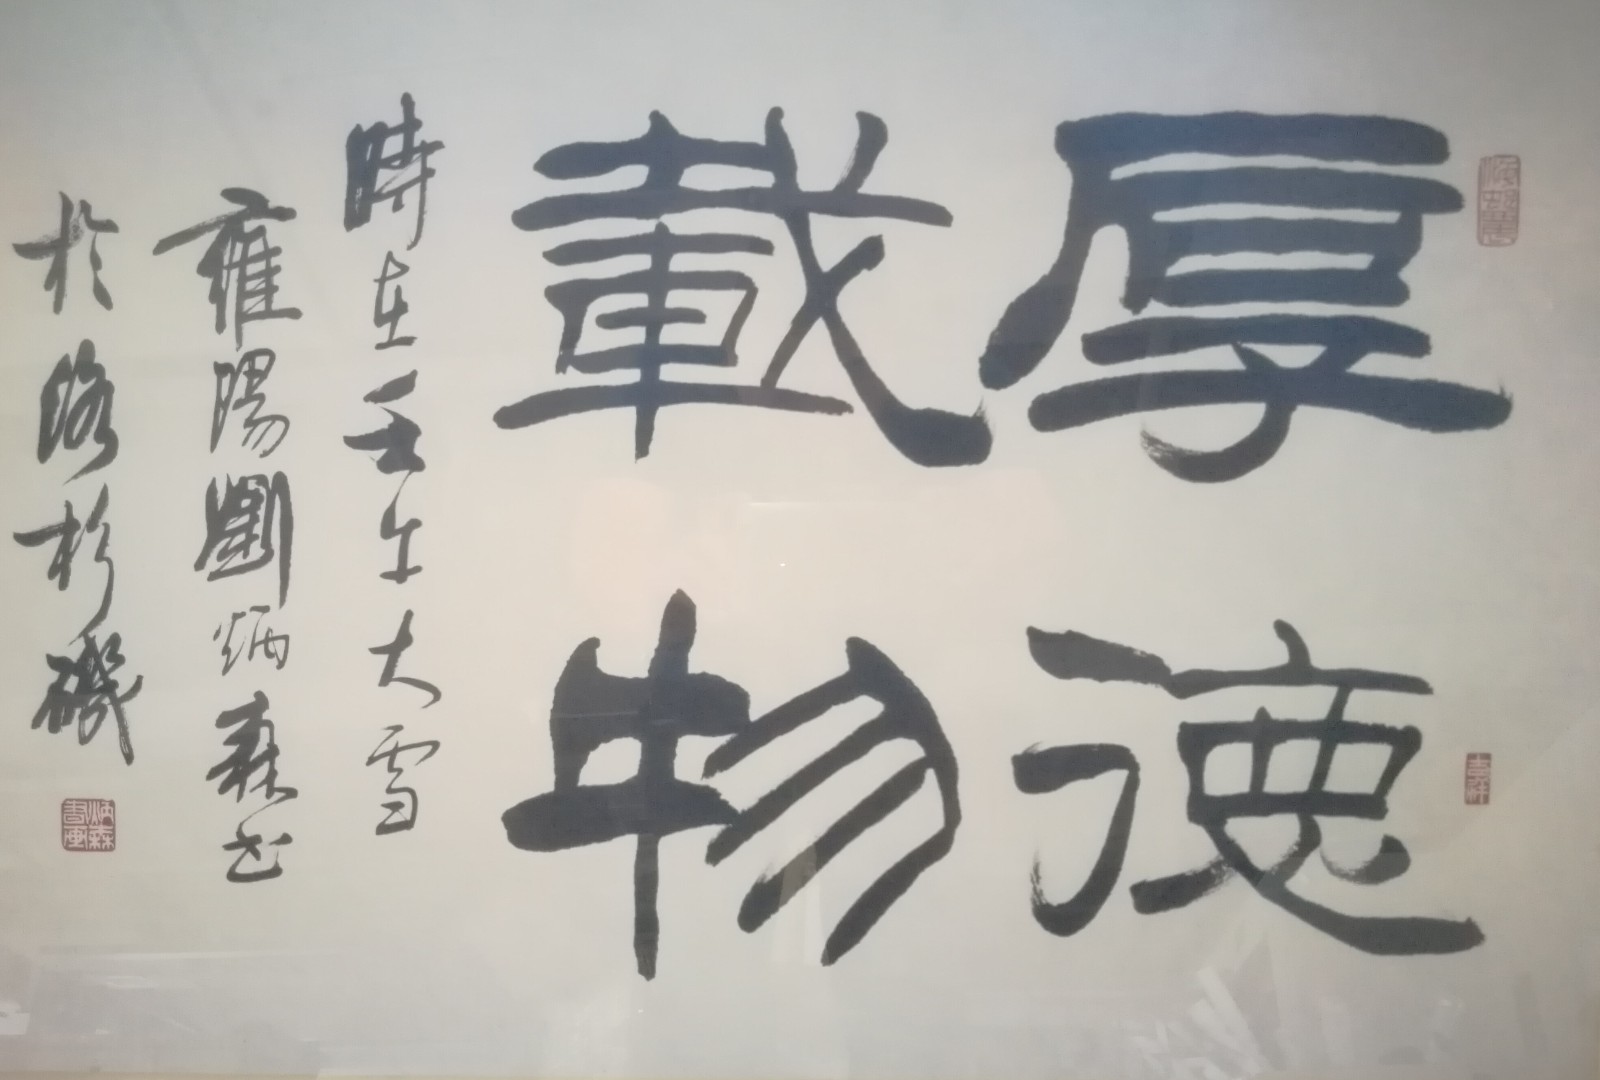 厚德
載物
時在壬午大雪
雍陽劉炳森书
於洛杉磯
吉祥
炳森書画